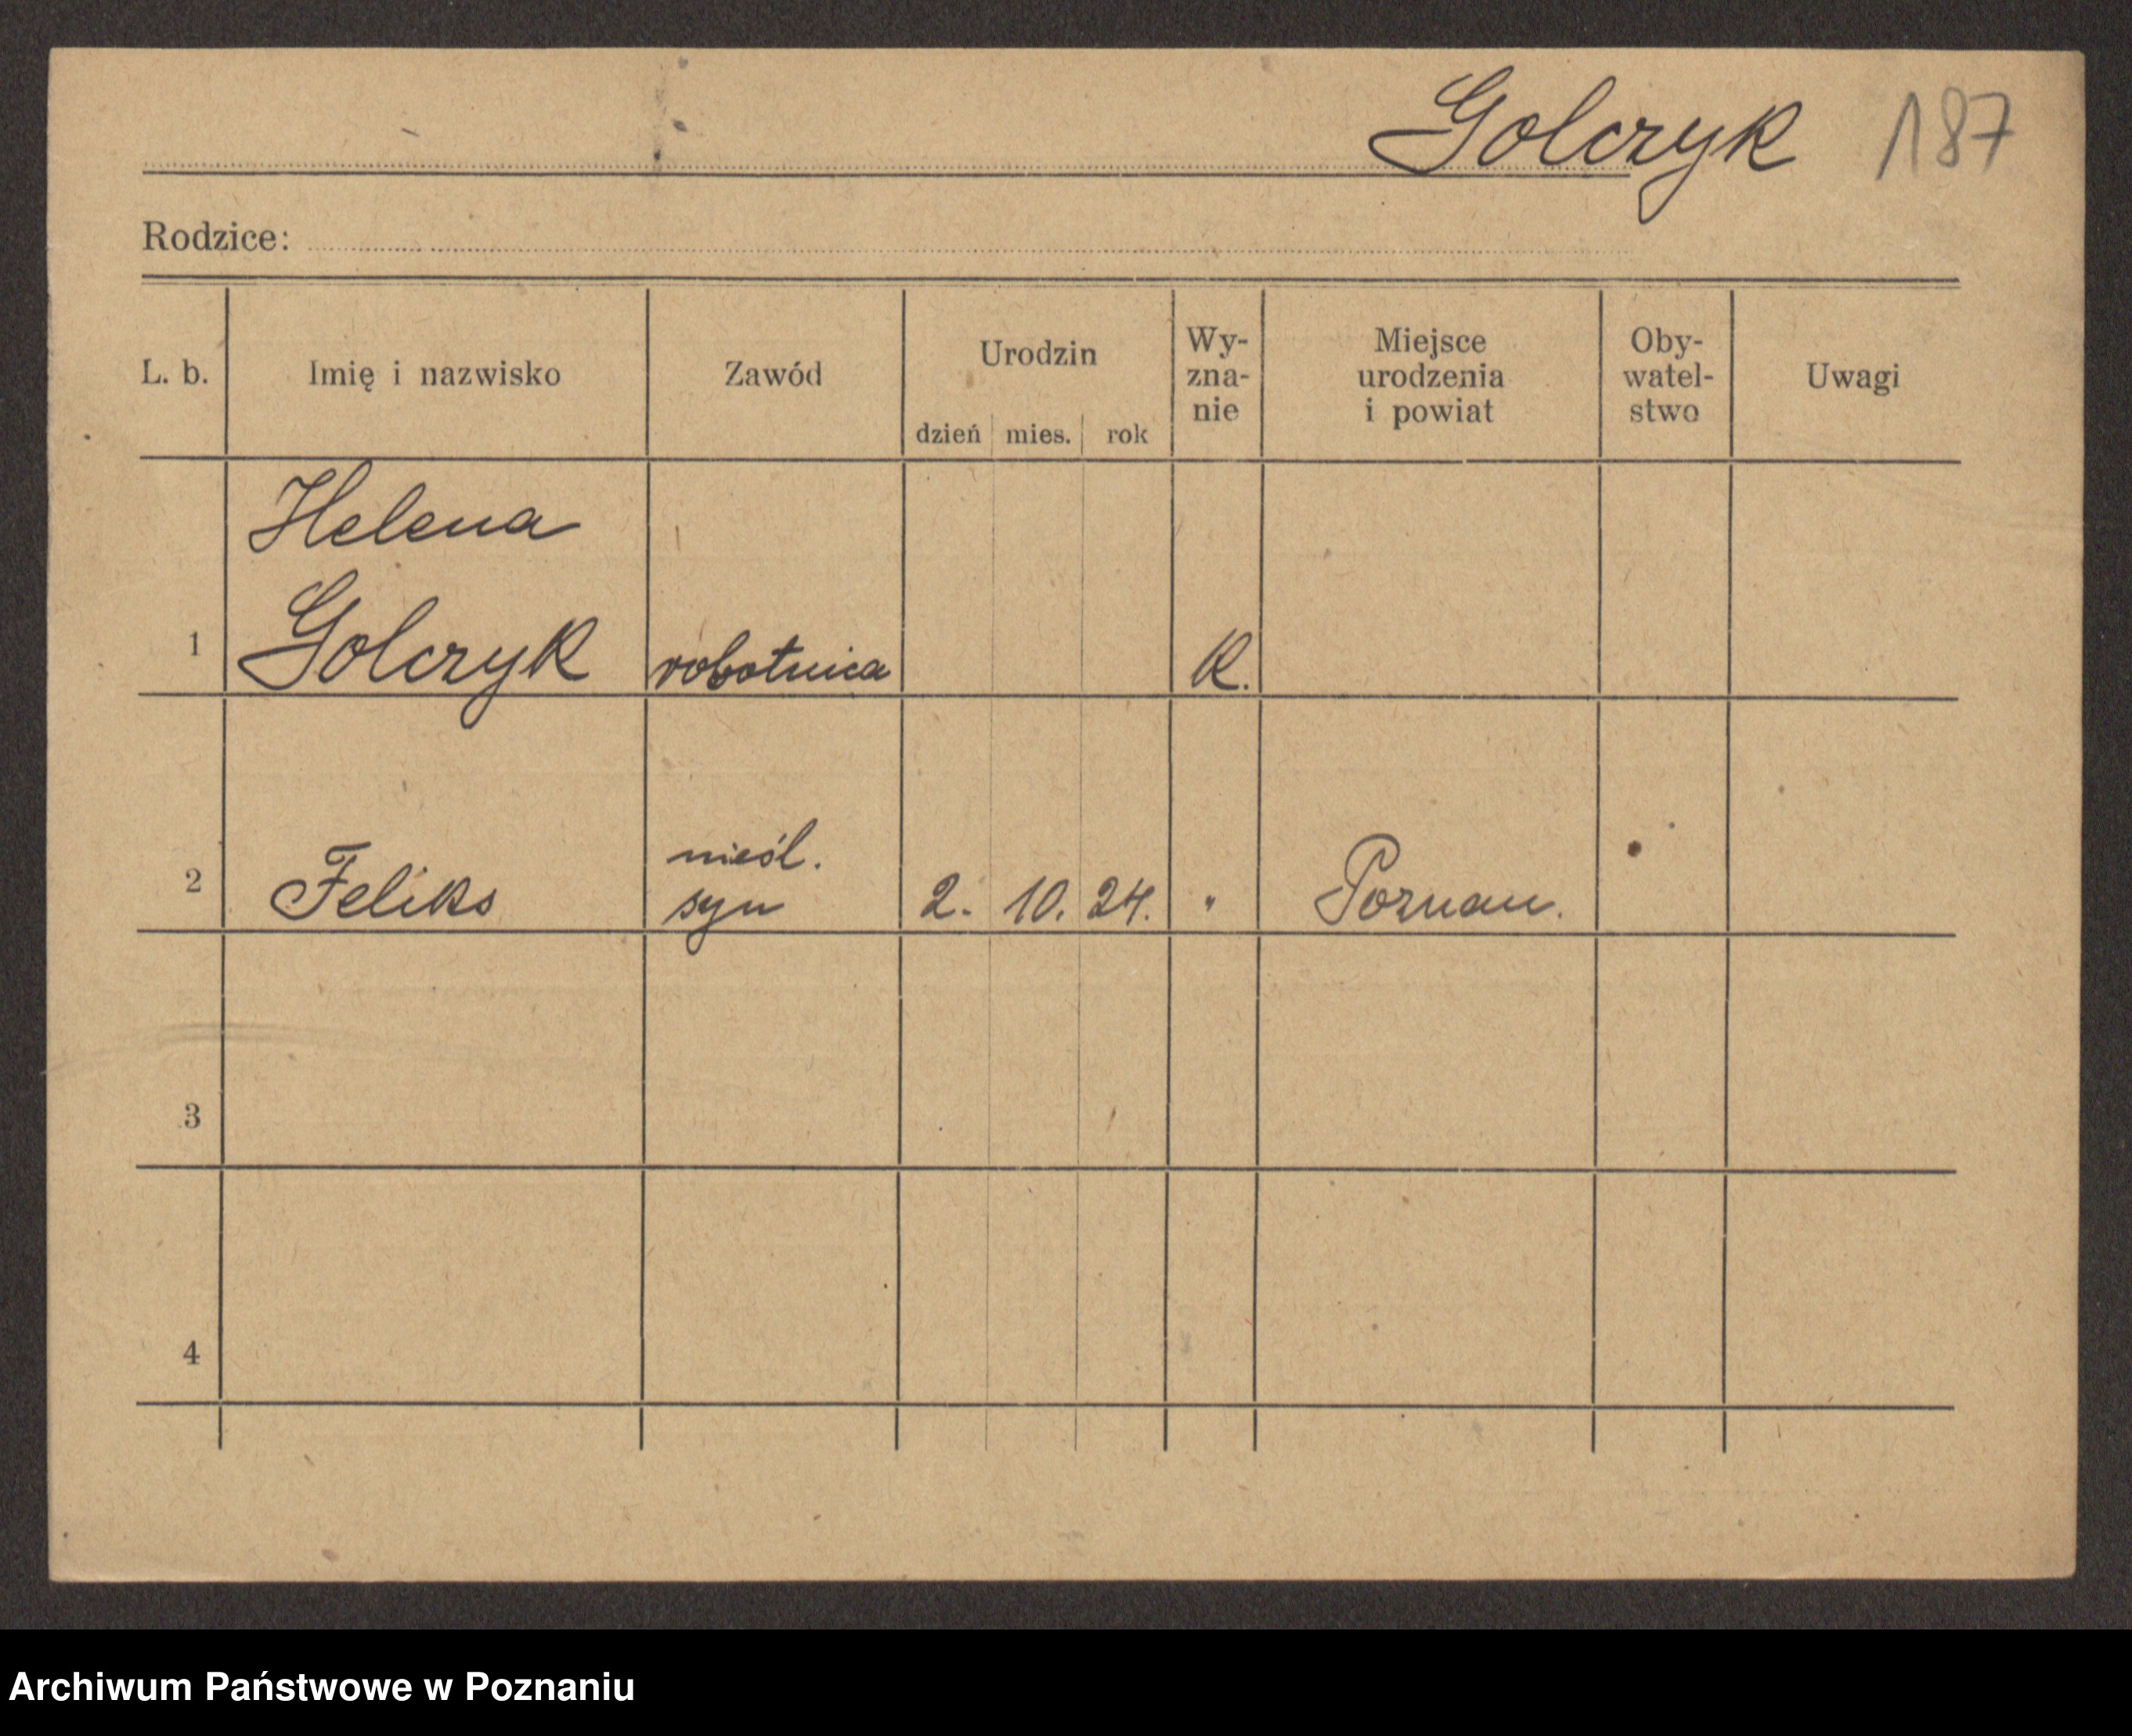 Golczyk 187
Rodzice:
L. b. Imię i nazwisko Zawód Urodzin dzień mies. rok Wy-zna-nie Miejsce urodzenia i powiat Oby-watel-stwo Uwagi
Helena
1 Golczyk robotnica K.
nieśl.
2 Feliks syn 2. 10. 24. " Poznan.
3
4
Archiwum Państwowe w Poznaniu